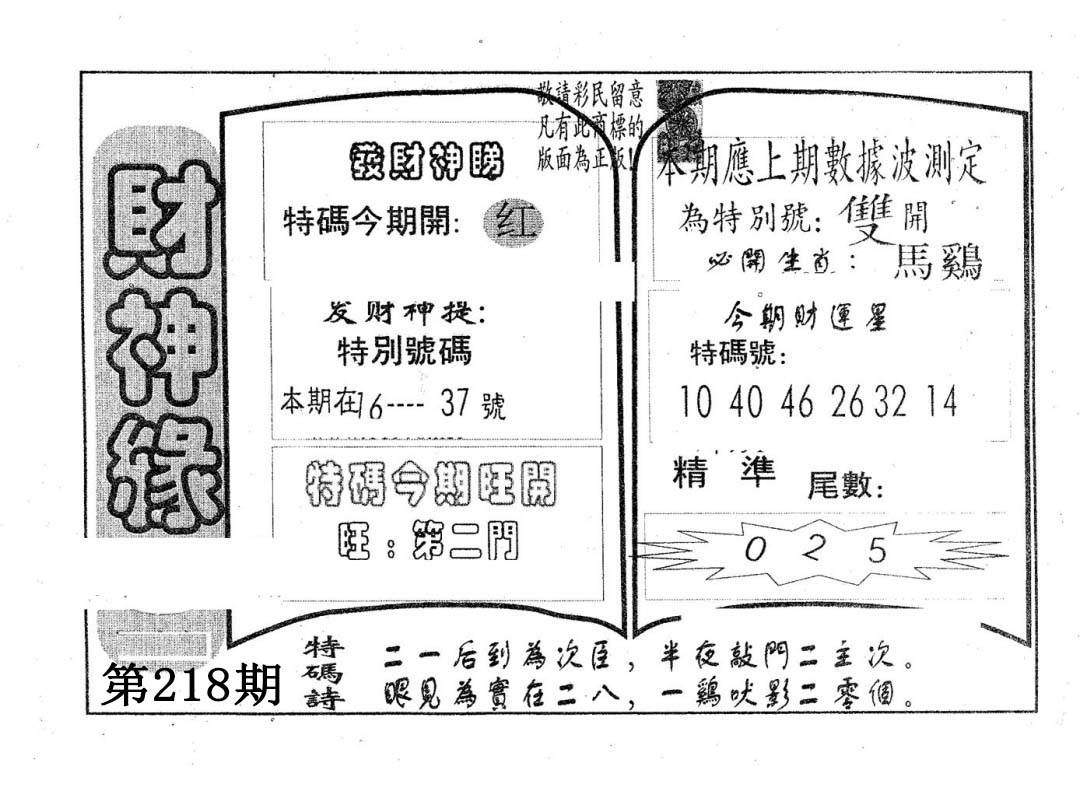 財神緣
第218期
敬請彩民留意
凡有此商標的
版面為正版!
發財神睇
特碼今期開: 红
发财神提:
特別號碼
本期在16----37號
特碼今期旺開
旺:第二門
本期應上期數據波測定
為特別號: 雙開
必開生肖: 馬鷄
今期財運星
特碼號:
10 40 46 26 32 14
精準 尾數:
0 2 5
特碼詩
二一后到為次臣,半夜敲門二主次。
眼見為實在二八,一鷄吠影二零個。